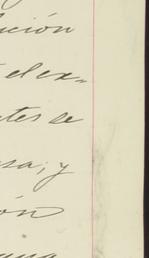 ición
el ex-
tes se
sa; y
ón